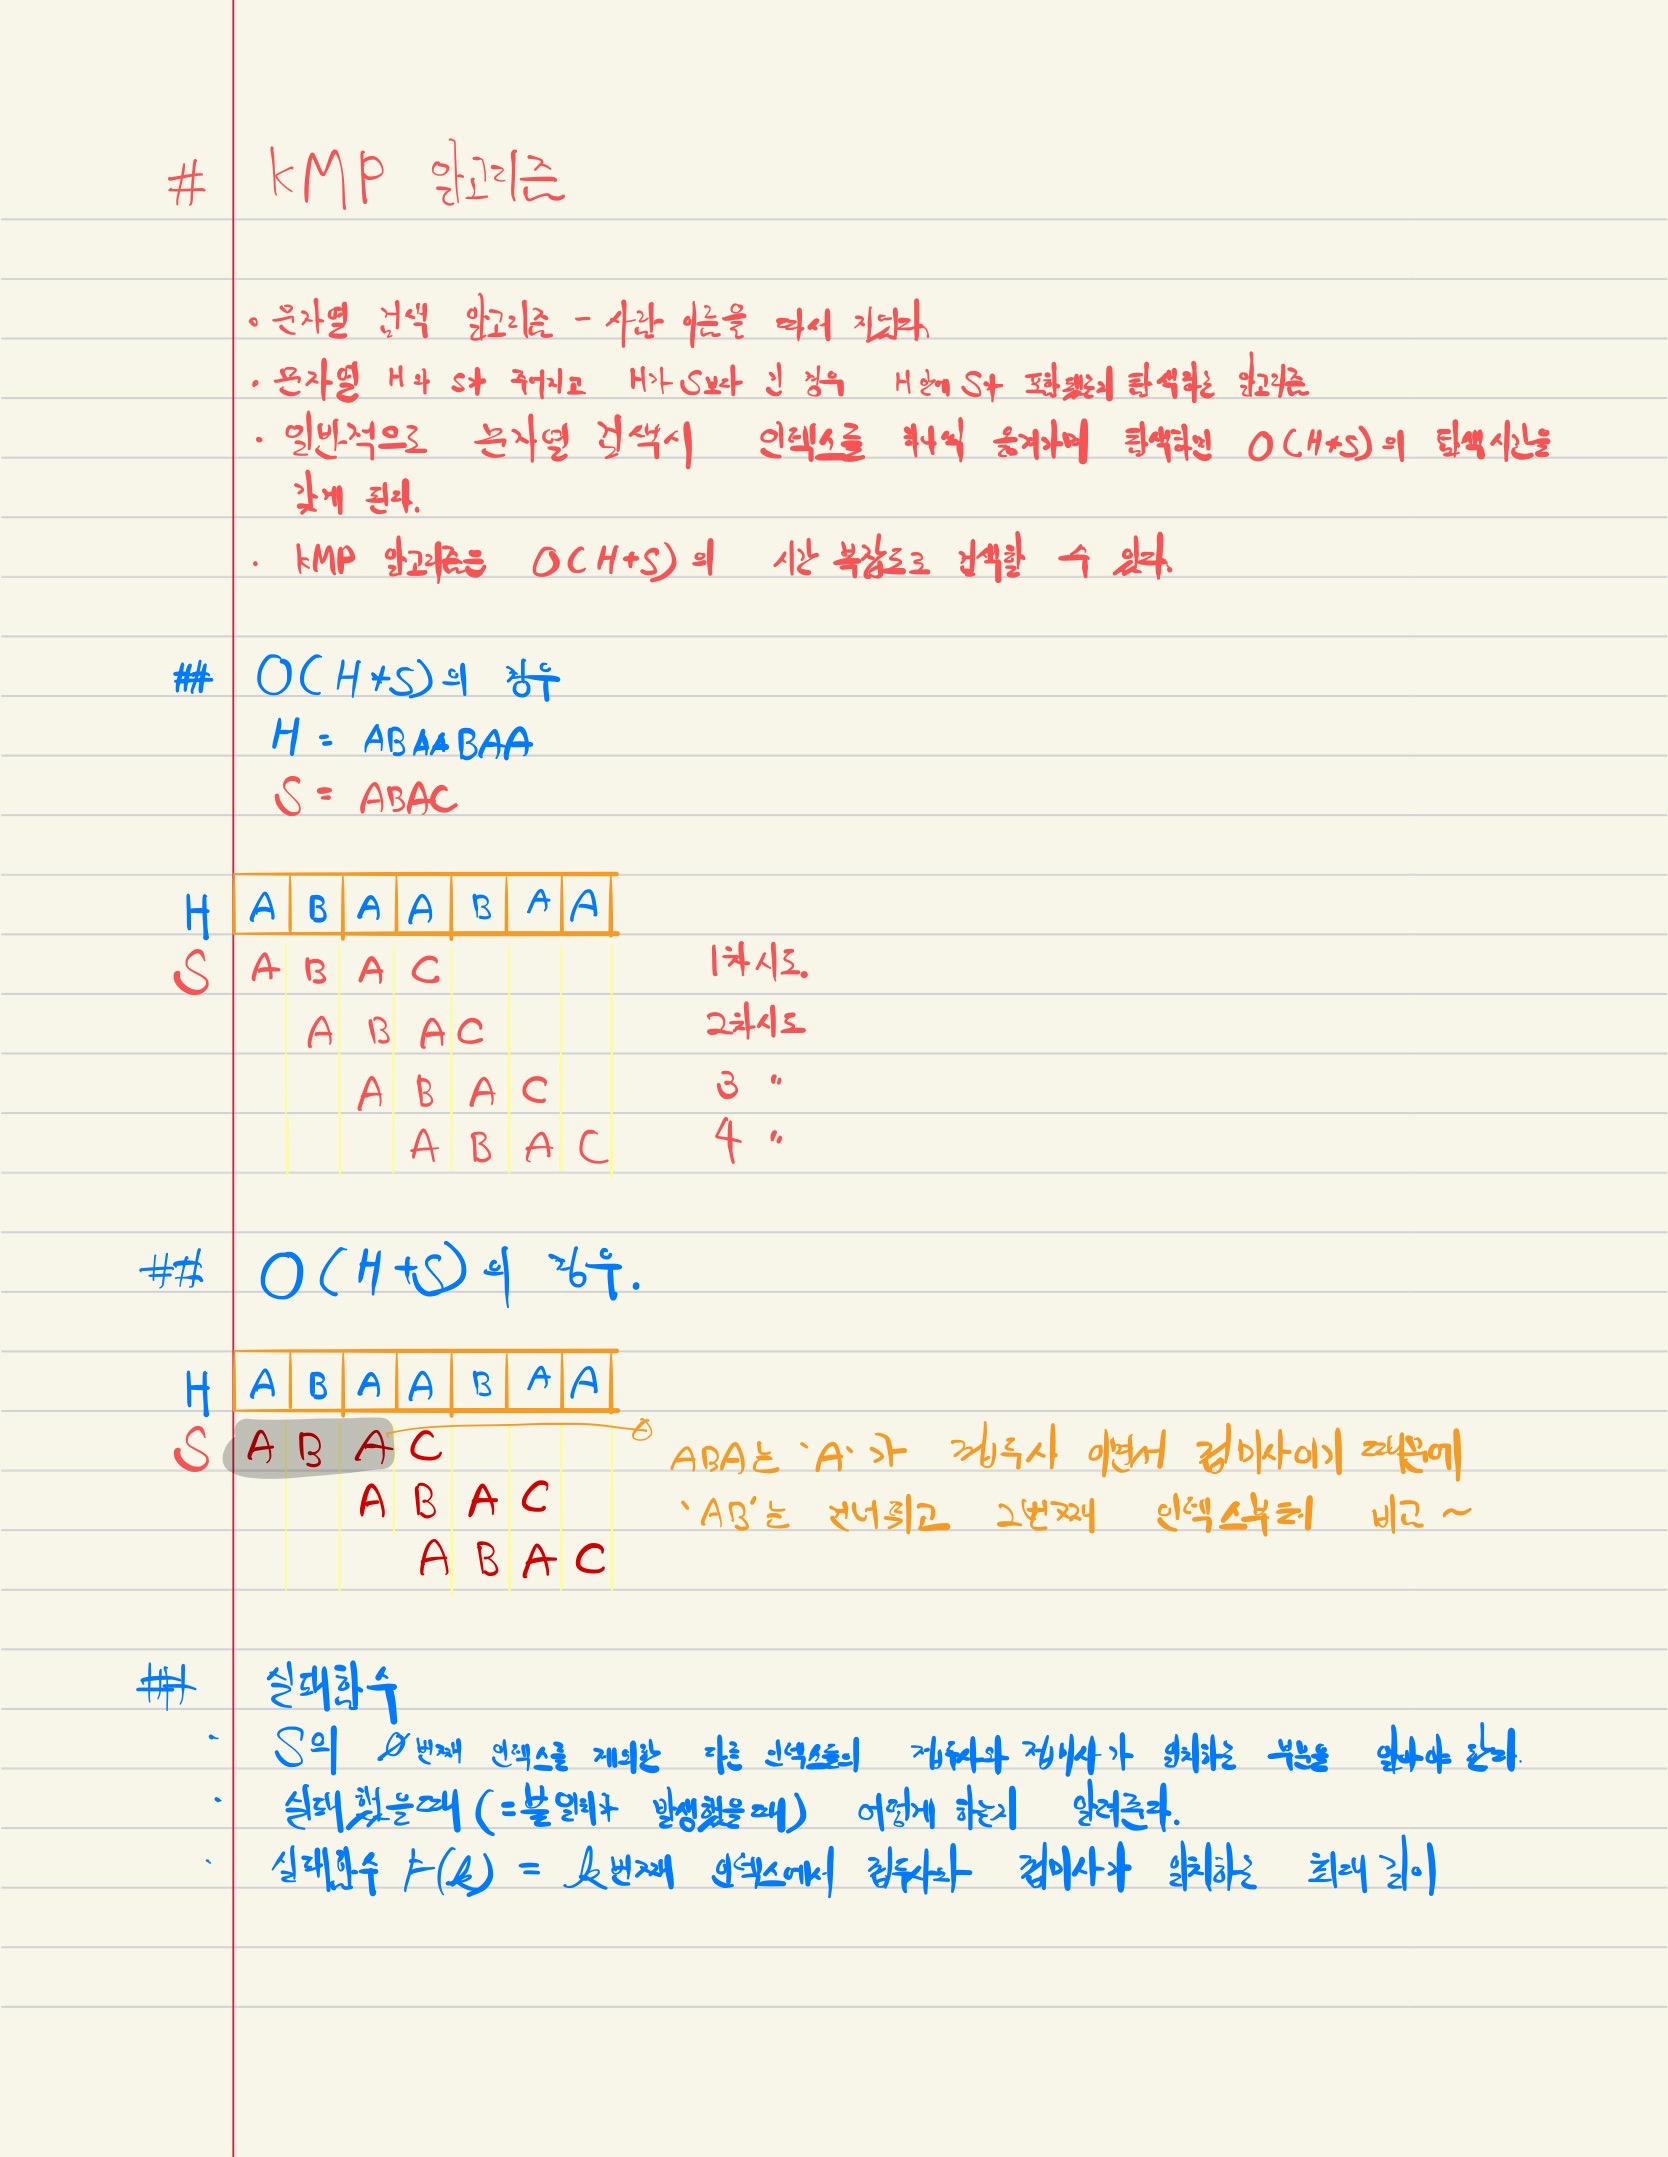 # KMP 알고리즘
· 문자열 검색 알고리즘 - 사람 이름을 따서 지었다.
· 문자열 H와 S가 주어지고 H가 S보다 긴 경우 H안에 S가 포함됐는지 탐색하는 알고리즘
· 일반적으로 문자열 검색시 인덱스를 하나씩 옮겨가며 탐색하면 O(H*S)의 탐색시간을
갖게 된다.
· KMP 알고리즘은 O(H+S)의 시간 복잡도로 검색할 수 있다.
## O(H*S)의 경우
H = ABAABAA
S = ABAC
H A B A A B A A
S A B A C 1차시도.
A B A C 2차시도
A B A C 3 "
A B A C 4 "
## O(H+S)의 경우.
H A B A A B A A
S A B A C
ABA는 'A'가 접두사 이면서 접미사이기 때문에
A B A C
'AB'는 건너뛰고 2번째 인덱스부터 비교~
A B A C
## 실패함수
· S의 0번째 인덱스를 제외한 다른 인덱스들의 접두사와 접미사가 일치하는 부분을 알아야 한다.
· 실패했을때(=불일치가 발생했을때) 어떻게 하는지 알려준다.
· 실패함수 F(k) = k번째 인덱스에서 접두사와 접미사가 일치하는 최대 길이